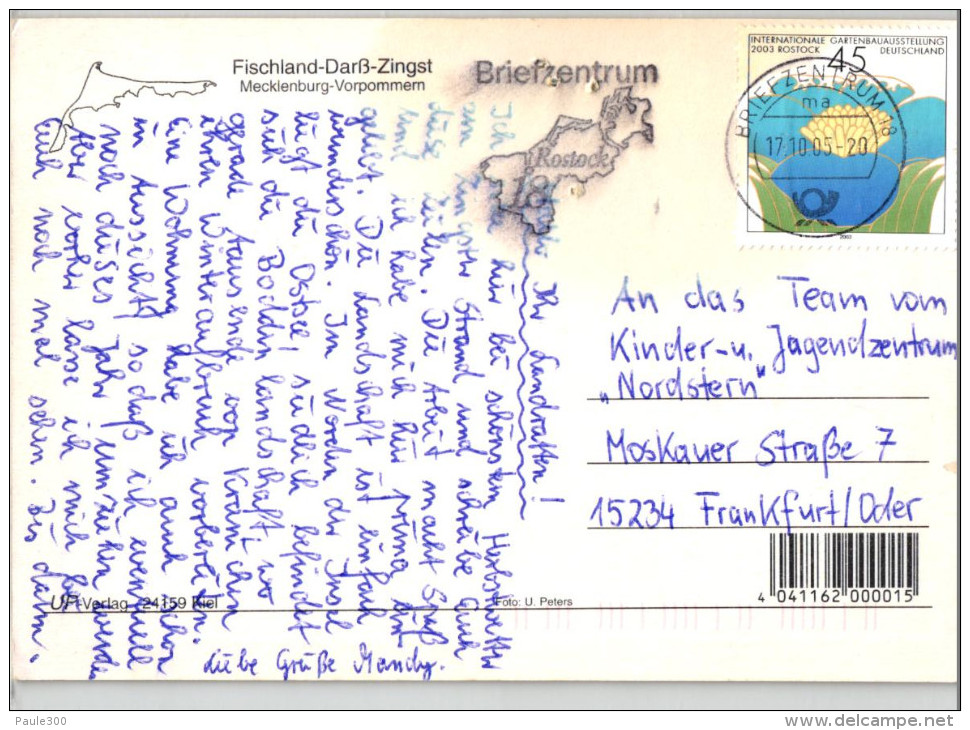 Fischland-Darß-Zingst
Mecklenburg-Vorpommern
Briefzentrum
Rostock
18
INTERNATIONALE GARTENBAUAUSSTELLUNG
2003 ROSTOCK
DEUTSCHLAND
45
BRIEFZENTRUM 18
ma
17.10.05-20
2003
Ihr Landratten!
Ich sitze hier bei schönstem Herbstwetter
am Zingster Strand und schreibe Euch
diese Zeilen. Die Arbeit macht Spaß
und ich habe mich hier prima ein
gelebt. Die Landschaft ist einfach
wunderschön. Im Norden der Insel
liegt die Ostsee, südlich befindet
sich die Boddenlandschaft, wo
gerade Tausende von Kranichen
ihren Winteraufbruch vorbereiten.
Eine Wohnung habe ich auch schon
in Aussicht, so daß ich eventuell
noch dieses Jahr umziehen werde.
Aber vorher lasse ich mich bei
Euch noch mal sehen. Bis dahin.
Liebe Grüße Mandy.
An das Team vom
Kinder-u. Jagendzentrum
„Nordstern"
Moskauer Straße 7
15234 Frankfurt/Oder
Verlag 24159 Kiel
Foto: U. Peters
4 041162 000015
Paule300
delcampe.net